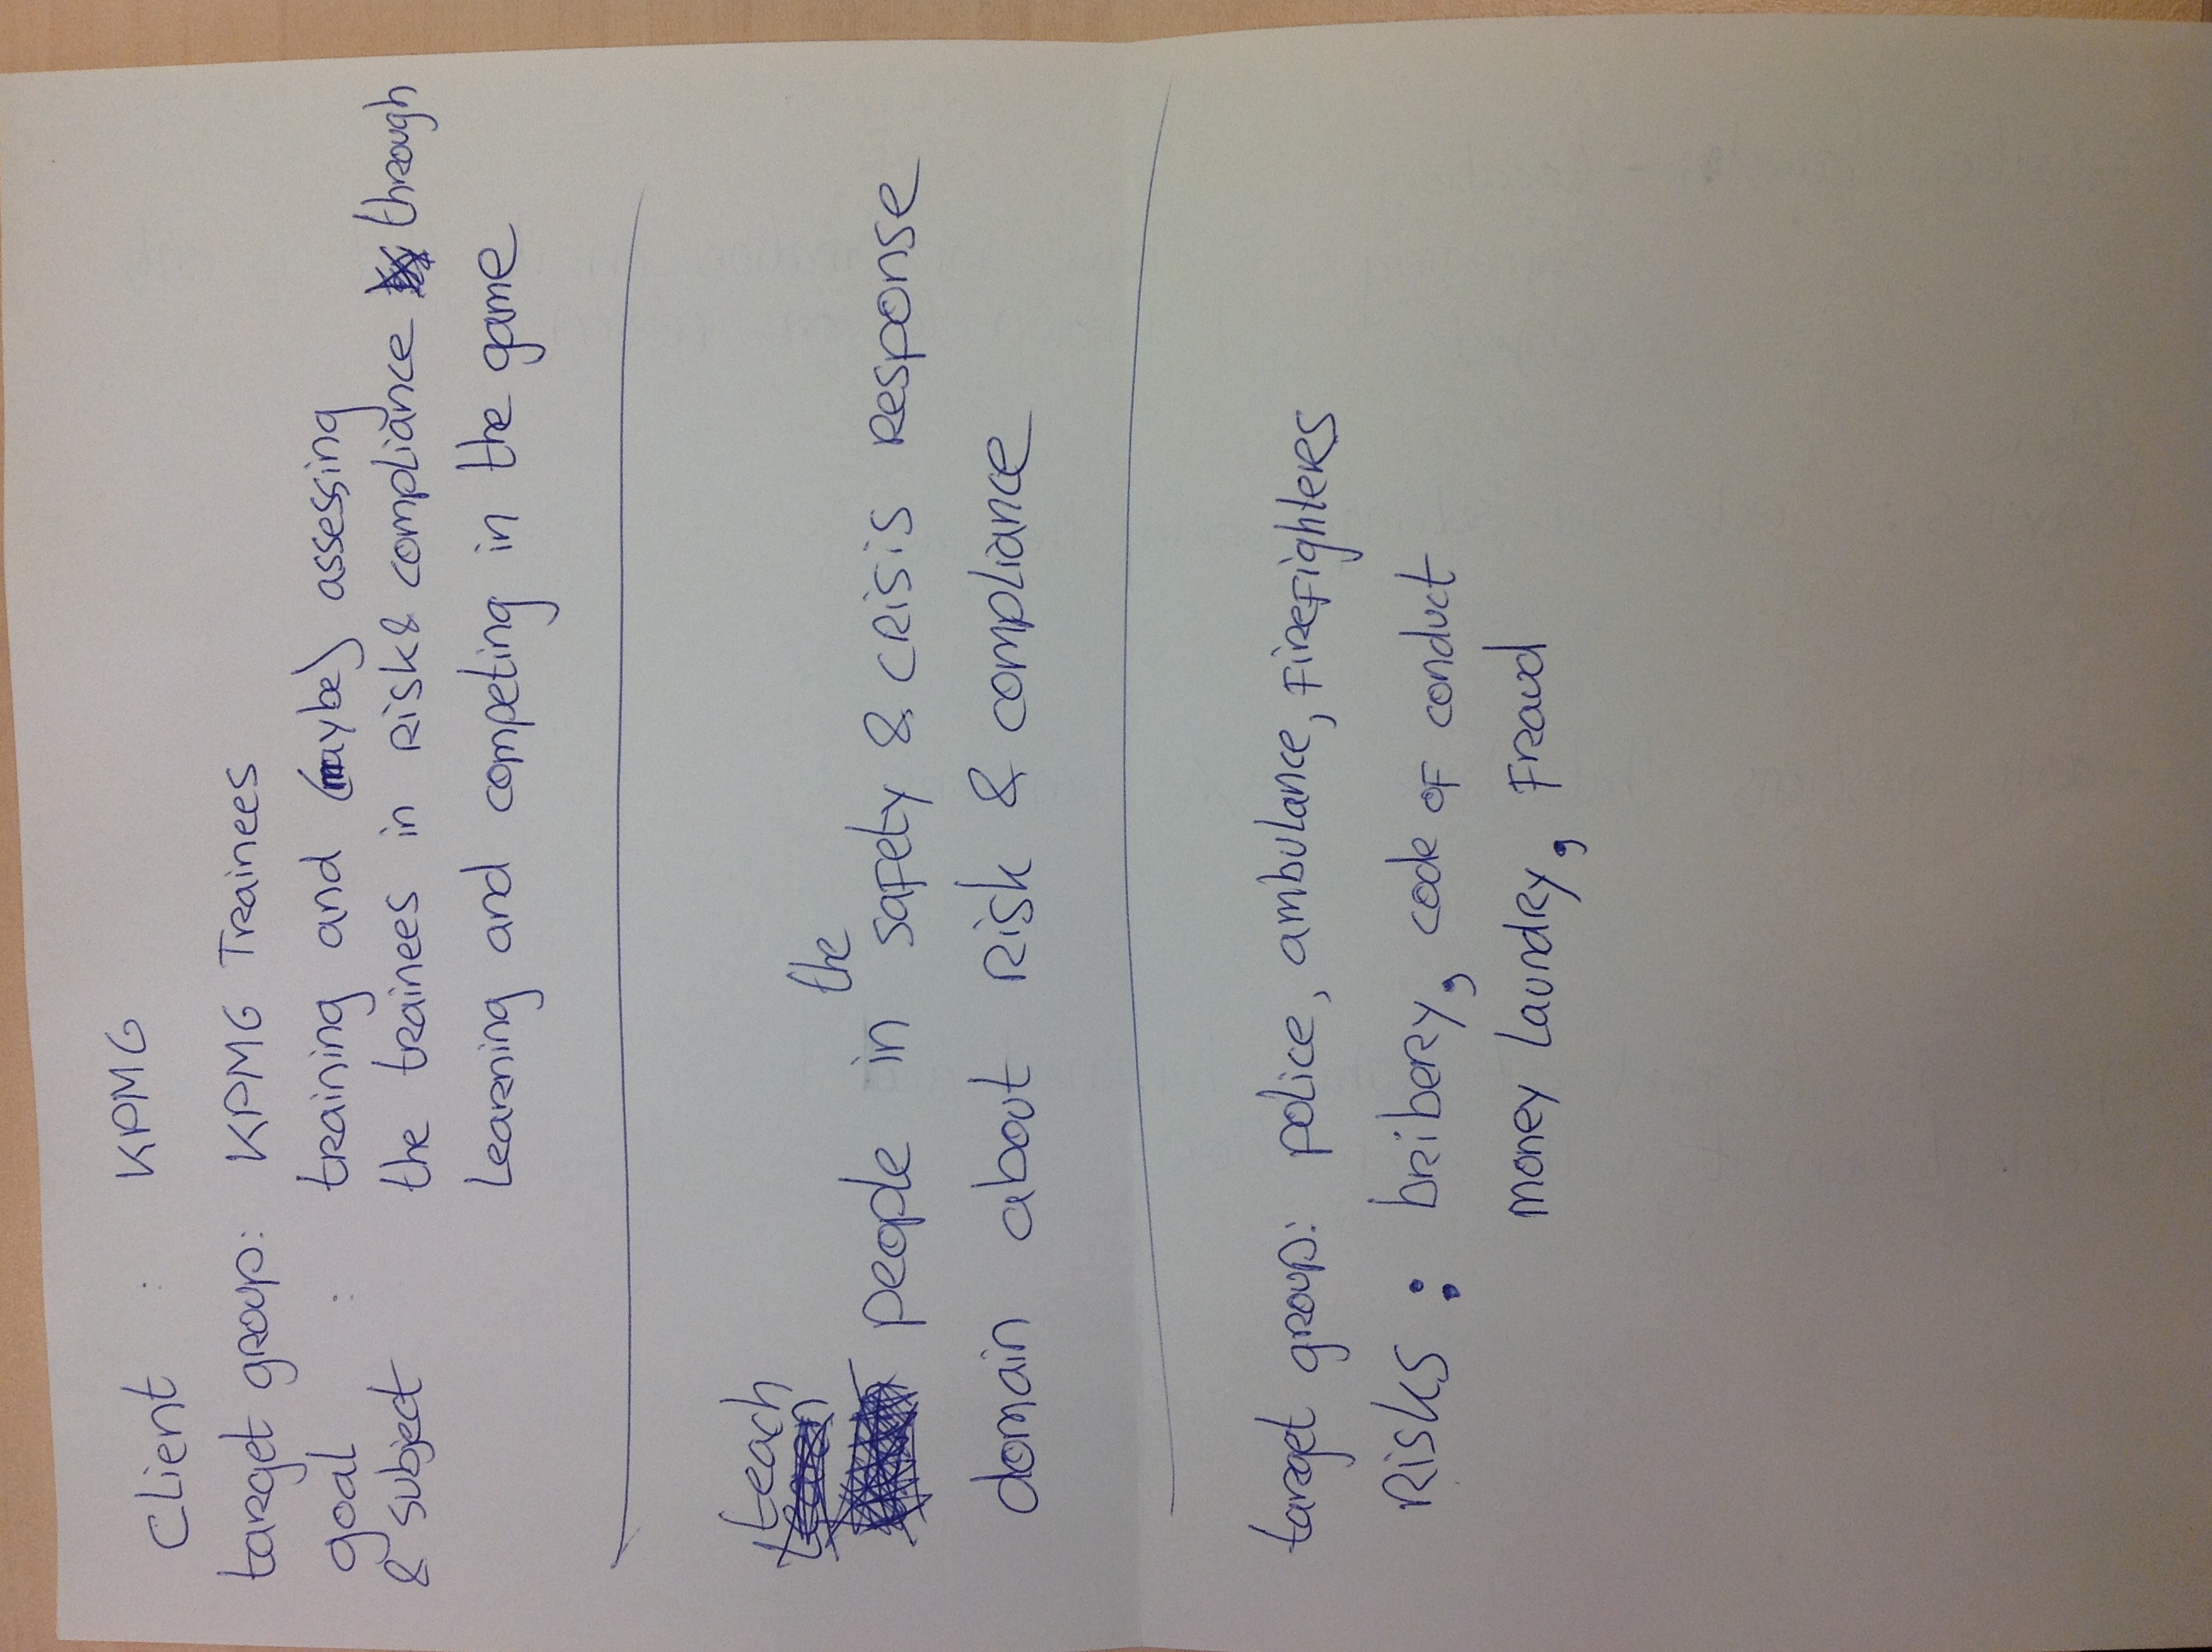 Client : KPMG
target group: KPMG Trainees
goal : training and (maybe) assessing
& subject the trainees in Risk & compliance through
Learning and competing in the game
teach
learn
the
people in safety & crisis Response
domain about Risk & compliance
target group: police, ambulance, Firefighters
Risks : bribery, code of conduct
money Laundry, Fraud